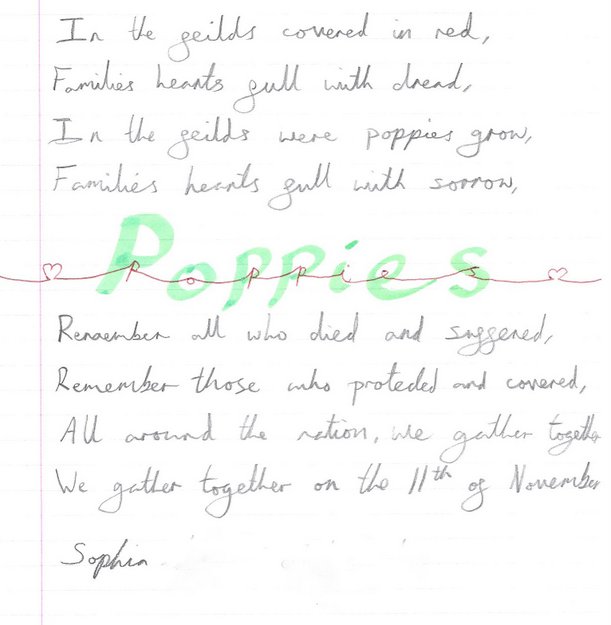 In the feilds covered in red,
Families hearts full with dread,
In the feilds were poppies grow,
Families hearts full with sorrow,
Poppies
Poppies
Remember all who died and suffered,
Remember those who protected and covered,
All around the nation, we gather together
We gather together on the 11th of November
Sophia